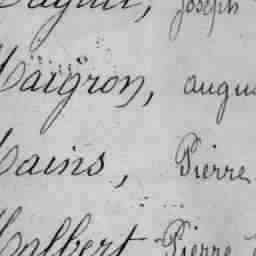 Joseph
Maigron, augus
Mains, Pierre
Malbert Pierre